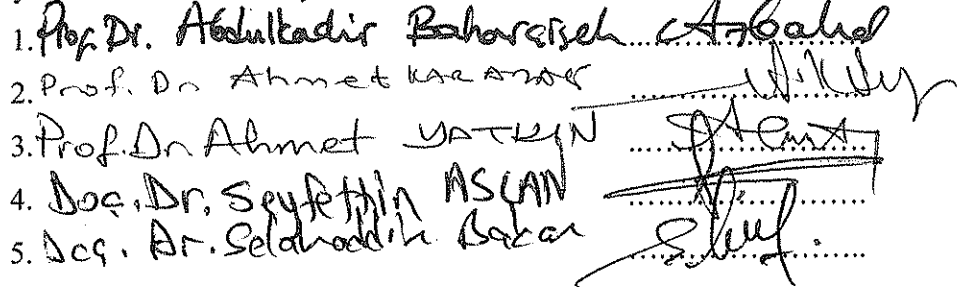 1. Prof. Dr. Abdulkadir Baharçiçek
2. Prof. Dr. Ahmet KARADAĞ
3. Prof. Dr. Ahmet YATKIN
4. Doç. Dr. Seyfettin ASLAN
5. Doç. Dr. Selahaddin Bakan